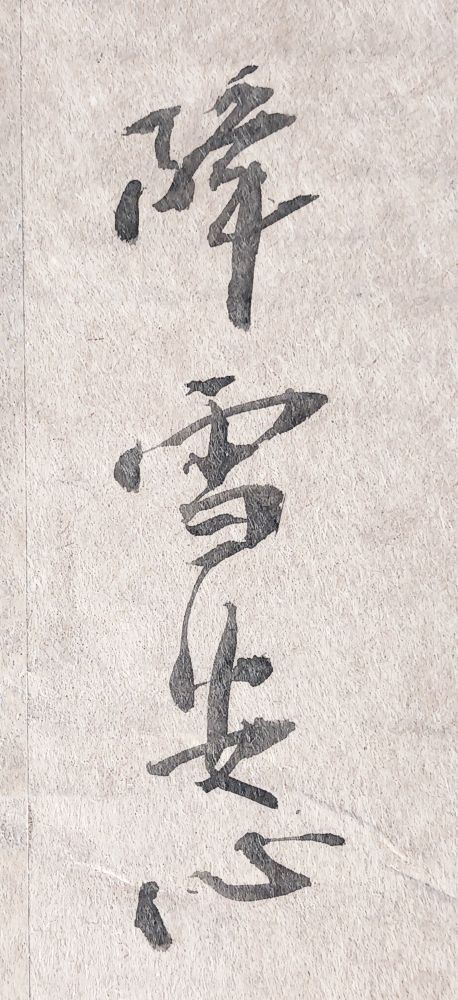 降雪安心